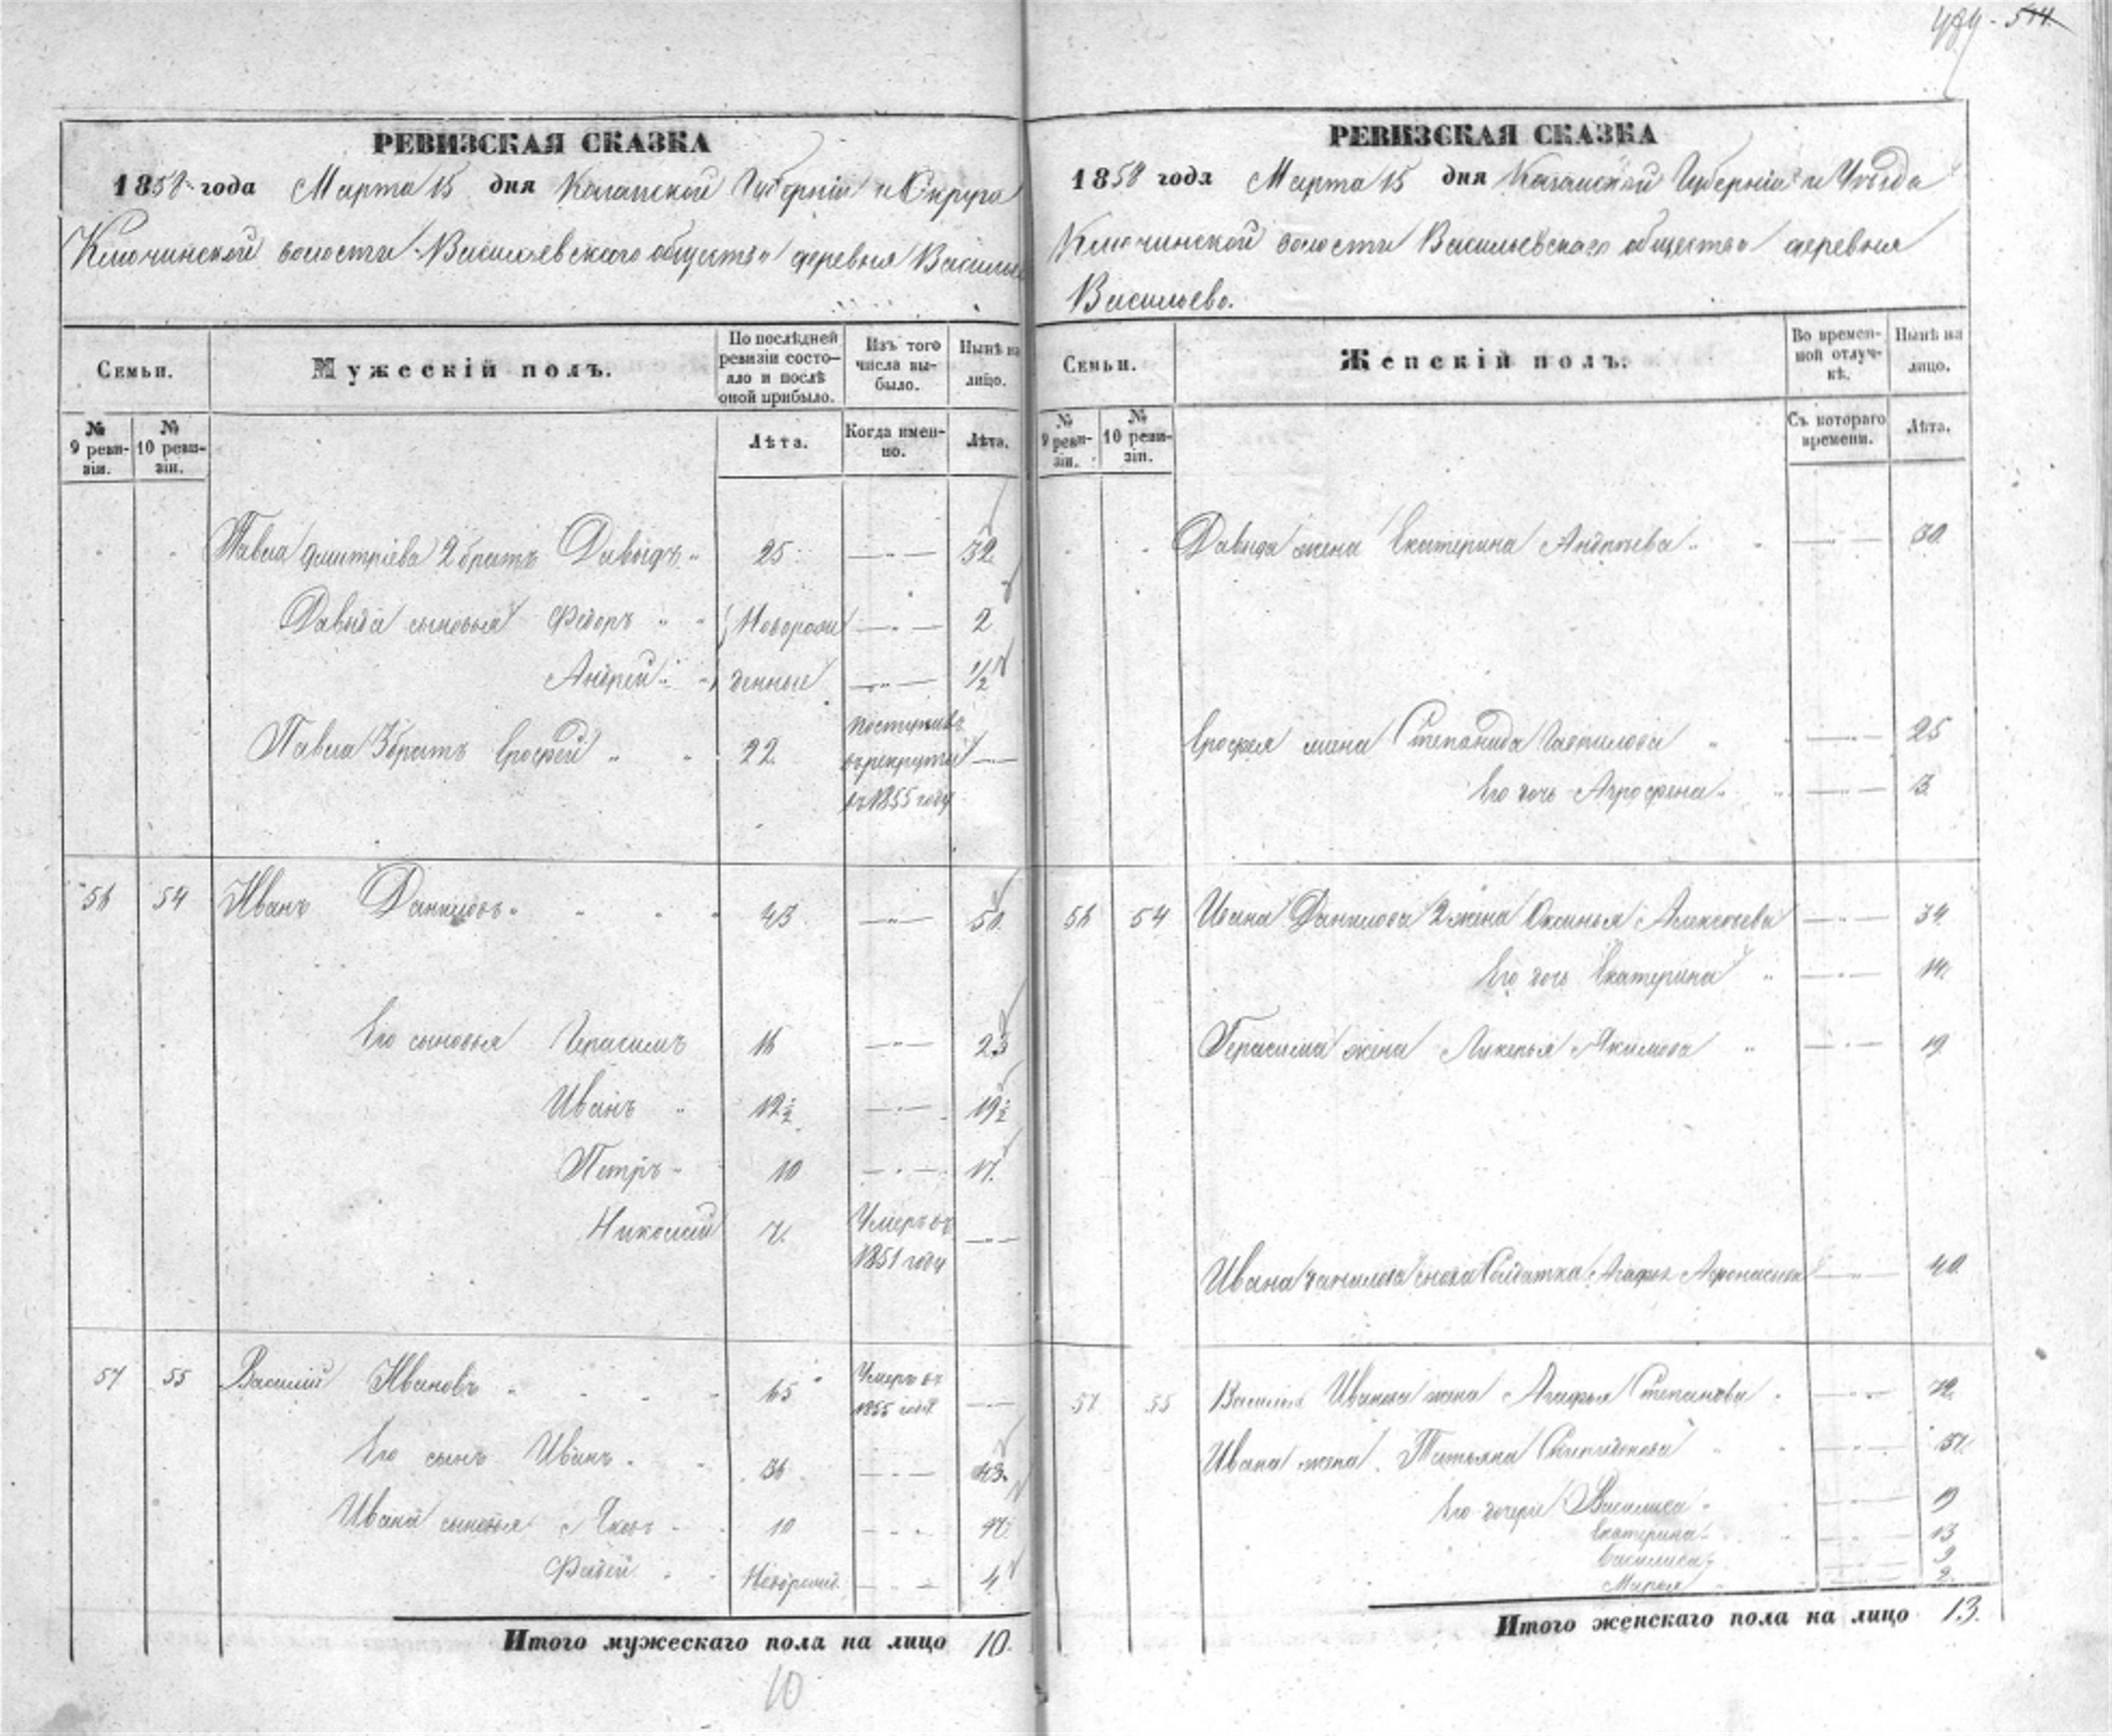 489 - 514.
РЕВИЗСКАЯ СКАЗКА
1858 года Марта 15 дня Казанской Губерніи и Округа
Ключинской волости Васильевскаго общества деревня Василье
Семьи.
Мужескій полъ.
По послѣдней ревизіи состо-
яло и послѣ
оной прибыло.
Изъ того
числа вы-
было.
Нынѣ на
лицо.
№
9 реви-
зіи.
№
10 реви-
зіи.
Лѣта.
Когда имен-
но.
Лѣта.
Павла Дмитріева 2 братъ Давыдъ 25 32
Давыда сыновья Федоръ Новорож 2
Андрей денные 1/2
Павла 3 братъ Ерофей 22 поступилъ
въ рекруты
въ 1855 году
56 54 Иванъ Даниловъ 43 50
Его сыновья Герасимъ 16 23
Иванъ 12 1/2 19 1/2
Петръ 10 17
Николай 7 Умеръ въ
1851 году
57 55 Василий Ивановъ 65 Умеръ въ
1855 году
Его сынъ Иванъ 36 43
Ивана сыновья Яковъ 10 17
Фадей Новорожд 4
Итого мужескаго пола на лицо 10.
10
РЕВИЗСКАЯ СКАЗКА
1858 года Марта 15 дня Казанской Губерніи и Уѣзда
Ключинской волости Васильевскаго общества деревня
Васильево.
Семьи.
Женскій полъ.
Во времен-
ной отлуч-
кѣ.
Нынѣ на
лицо.
№
9 реви-
зіи.
№
10 реви-
зіи.
Съ котораго
времени.
Лѣта.
Давыда жена Екатерина Андреева 30
Ерофея жена Степанида Гаврилова 25
Его дочь Агрофена 3
56 54 Ивана Данилова 2 жена Оксинья Алексеева 34
Его дочь Екатерина 14
Герасима жена Лукерья Якимова 19
Ивана Данилова сноха Солдатка Агафья 40
57 55 Василья Иванова жена Агафья Степанова 72
Ивана жена Татьяна 37
Его дочери Василиса 19
Екатерина 13
Василиса 9
Марья 2
Итого женскаго пола на лицо 13.